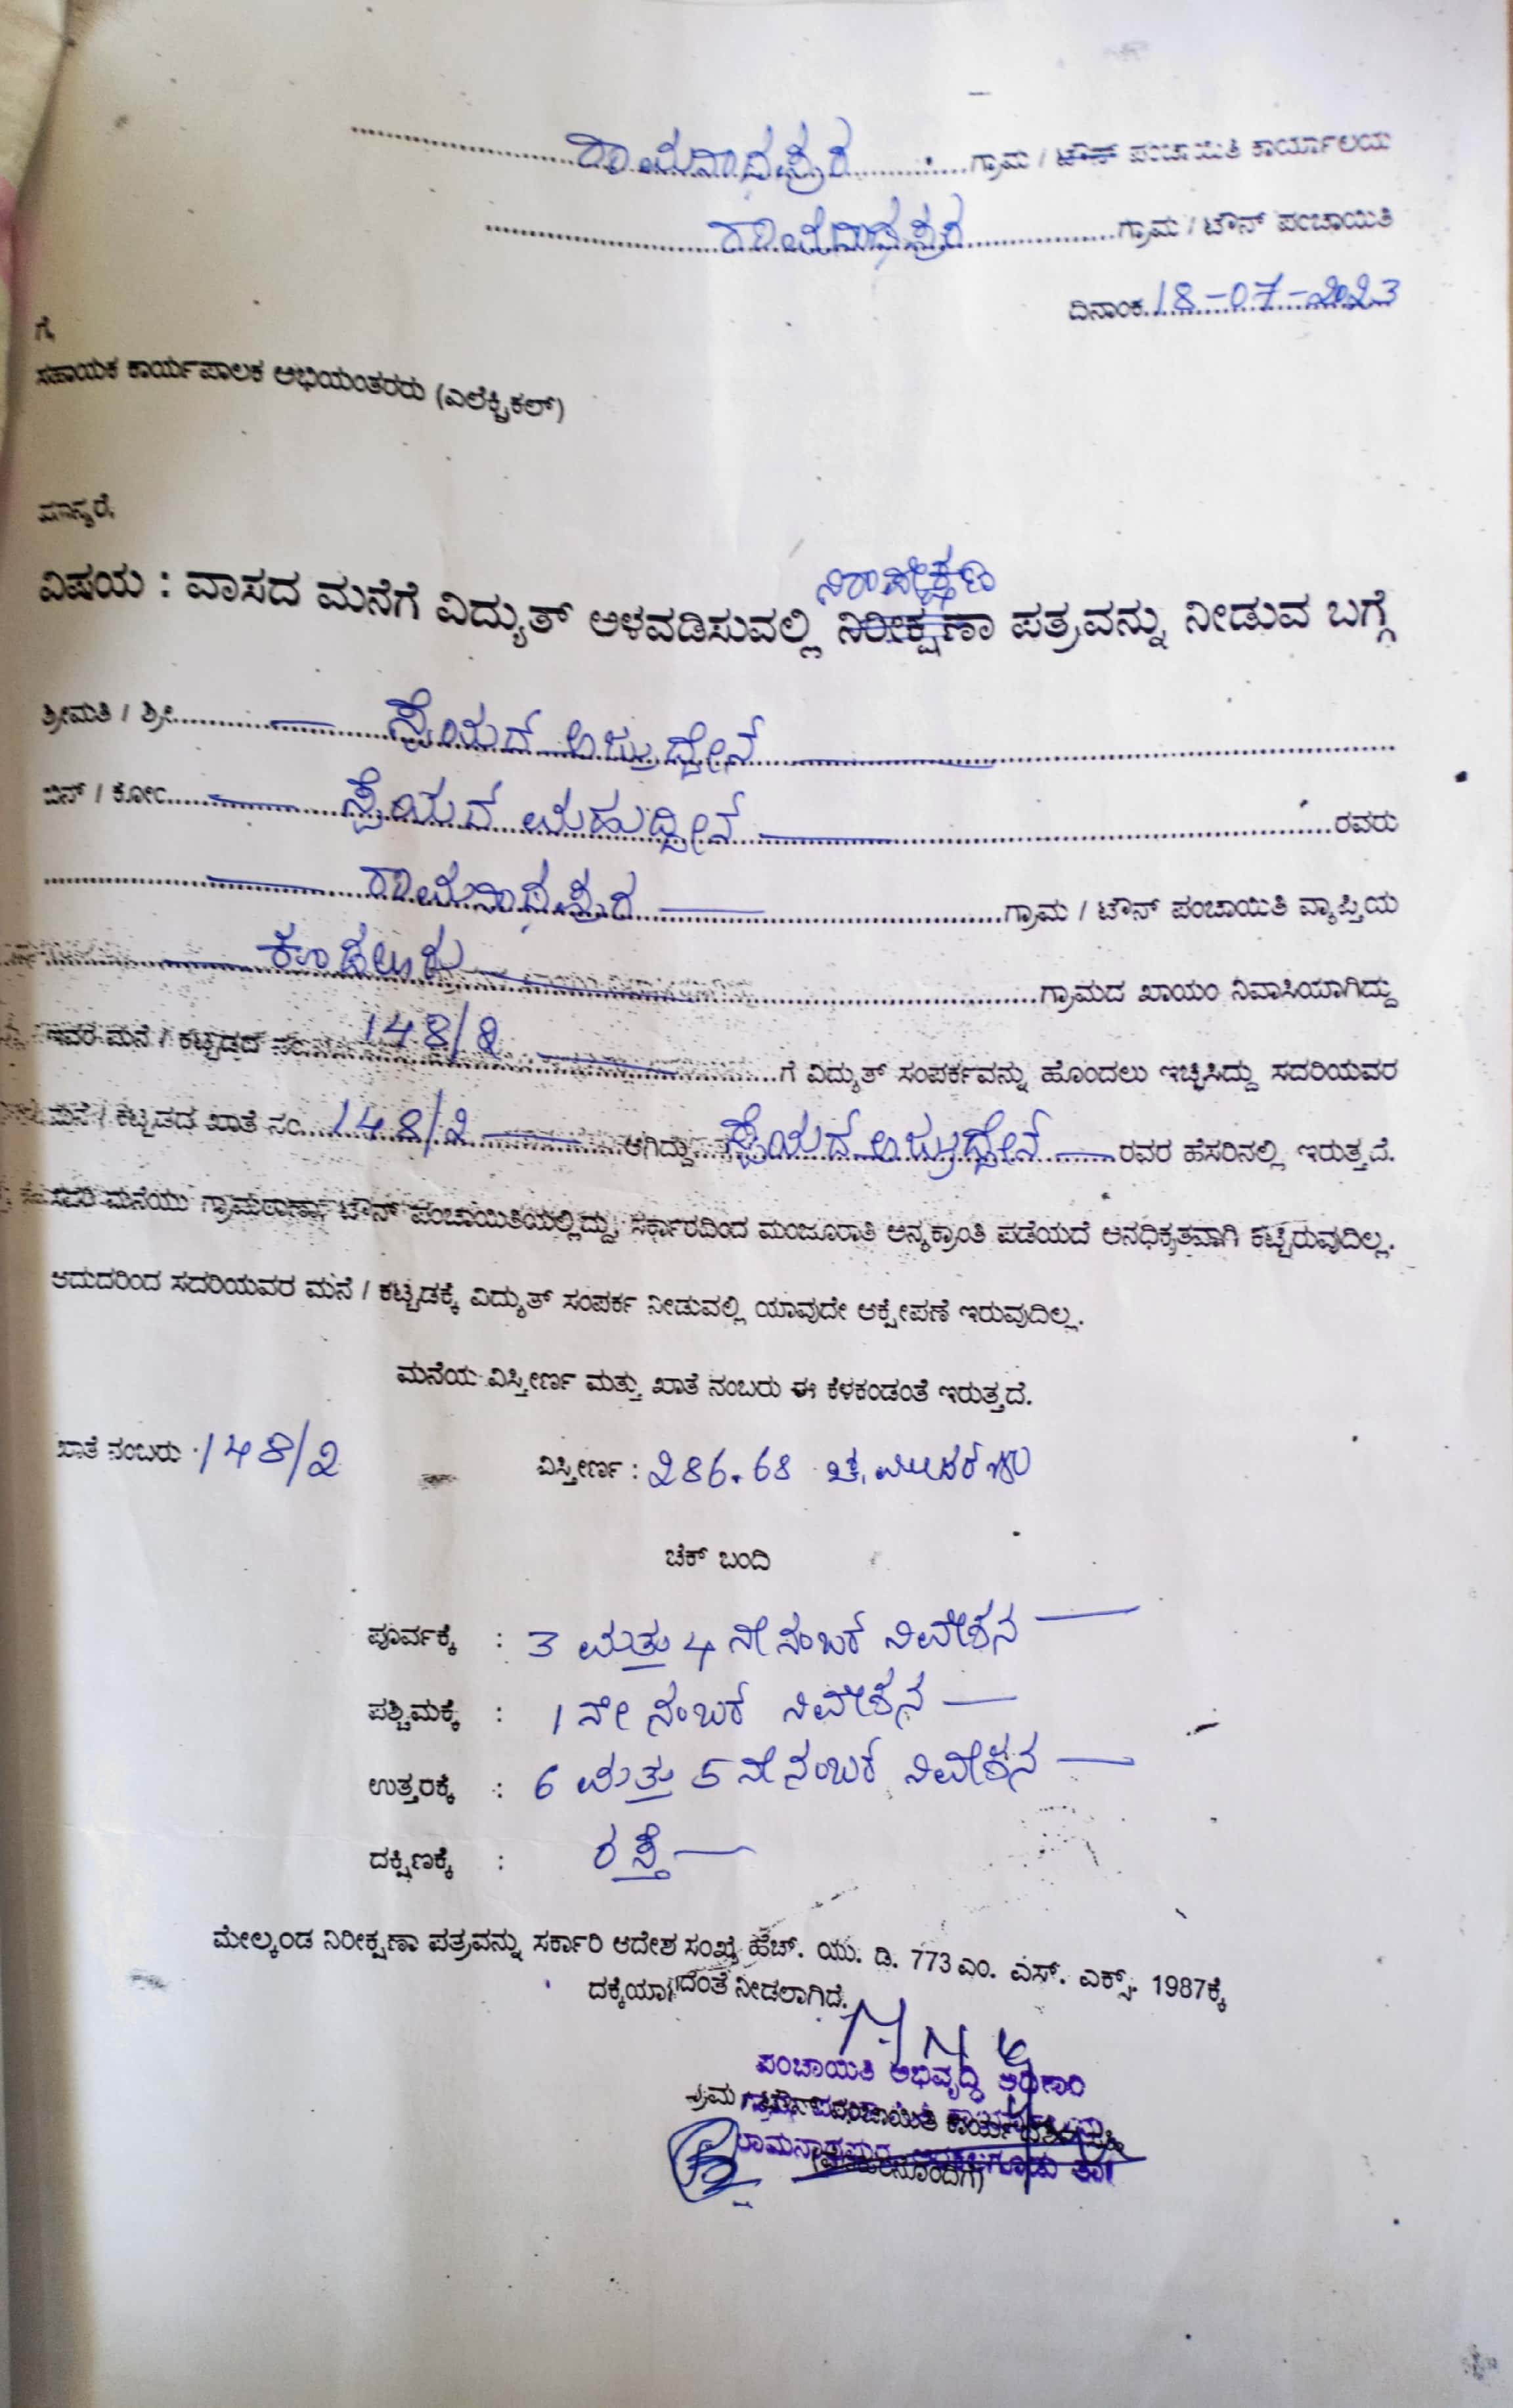 ರಾಮನಾಥಪುರ ಗ್ರಾಮ / ಟೌನ್ ಪಂಚಾಯಿತಿ ಕಾರ್ಯಾಲಯ
ರಾಮನಾಥಪುರ ಗ್ರಾಮ / ಟೌನ್ ಪಂಚಾಯಿತಿ
ದಿನಾಂಕ 18-07-2023
ಗೆ,
ಸಹಾಯಕ ಕಾರ್ಯಪಾಲಕ ಅಭಿಯಂತರರು (ಎಲೆಕ್ಟ್ರಿಕಲ್)
ಮಾನ್ಯರೆ,
ನಿರಾಪೇಕ್ಷಣಾ
ವಿಷಯ : ವಾಸದ ಮನೆಗೆ ವಿದ್ಯುತ್ ಅಳವಡಿಸುವಲ್ಲಿ ನಿರೀಕ್ಷಣಾ ಪತ್ರವನ್ನು ನೀಡುವ ಬಗ್ಗೆ
ಶ್ರೀಮತಿ / ಶ್ರೀ ಸೈಯದ್
ಬಿನ್ / ಕೋಂ ಸೈಯದ್ ಮಹುದ್ದೀನ್ ರವರು
ರಾಮನಾಥಪುರ ಗ್ರಾಮ / ಟೌನ್ ಪಂಚಾಯಿತಿ ವ್ಯಾಪ್ತಿಯ
ಕೂಡಲೂರು ಗ್ರಾಮದ ಖಾಯಂ ನಿವಾಸಿಯಾಗಿದ್ದು
ಇವರ ಮನೆ / ಕಟ್ಟಡದ ನಂ 148/2 ಗೆ ವಿದ್ಯುತ್ ಸಂಪರ್ಕವನ್ನು ಹೊಂದಲು ಇಚ್ಛಿಸಿದ್ದು ಸದರಿಯವರ
ಮನೆ / ಕಟ್ಟಡದ ಖಾತೆ ನಂ 148/2 ಆಗಿದ್ದು ಸೈಯದ್ ರವರ ಹೆಸರಿನಲ್ಲಿ ಇರುತ್ತದೆ.
ಸದರಿ ಮನೆಯು ಗ್ರಾಮಠಾಣಾ/ ಟೌನ್ ಪಂಚಾಯಿತಿಯಲ್ಲಿದ್ದು, ಸರ್ಕಾರದಿಂದ ಮಂಜೂರಾತಿ ಅನ್ಯಕ್ರಾಂತಿ ಪಡೆಯದೆ ಅನಧಿಕೃತವಾಗಿ ಕಟ್ಟಿರುವುದಿಲ್ಲ.
ಆದುದರಿಂದ ಸದರಿಯವರ ಮನೆ / ಕಟ್ಟಡಕ್ಕೆ ವಿದ್ಯುತ್ ಸಂಪರ್ಕ ನೀಡುವಲ್ಲಿ ಯಾವುದೇ ಆಕ್ಷೇಪಣೆ ಇರುವುದಿಲ್ಲ.
ಮನೆಯ ವಿಸ್ತೀರ್ಣ ಮತ್ತು ಖಾತೆ ನಂಬರು ಈ ಕೆಳಕಂಡಂತೆ ಇರುತ್ತದೆ.
ಖಾತೆ ನಂಬರು 148/2 ವಿಸ್ತೀರ್ಣ : 286.68 ಚ. ಮೀಟರ್
ಚೆಕ್ ಬಂದಿ
ಪೂರ್ವಕ್ಕೆ : 3 ಮತ್ತು 4 ನೇ ನಂಬರ್ ನಿವೇಶನ
ಪಶ್ಚಿಮಕ್ಕೆ : 1 ನೇ ನಂಬರ್ ನಿವೇಶನ
ಉತ್ತರಕ್ಕೆ : 6 ಮತ್ತು 5 ನೇ ನಂಬರ್ ನಿವೇಶನ
ದಕ್ಷಿಣಕ್ಕೆ : ರಸ್ತೆ
ಮೇಲ್ಕಂಡ ನಿರೀಕ್ಷಣಾ ಪತ್ರವನ್ನು ಸರ್ಕಾರಿ ಆದೇಶ ಸಂಖ್ಯೆ ಹೆಚ್. ಯು. ಡಿ. 773 ಎಂ. ಎಸ್. ಎಕ್ಸ್. 1987ಕ್ಕೆ
ದಕ್ಕೆಯಾಗದಂತೆ ನೀಡಲಾಗಿದೆ.
ಪಂಚಾಯಿತಿ ಅಭಿವೃದ್ಧಿ ಅಧಿಕಾರಿ
ಟೌನ್ ಪಂಚಾಯಿತಿ
ರಾಮನಾಥಪುರ